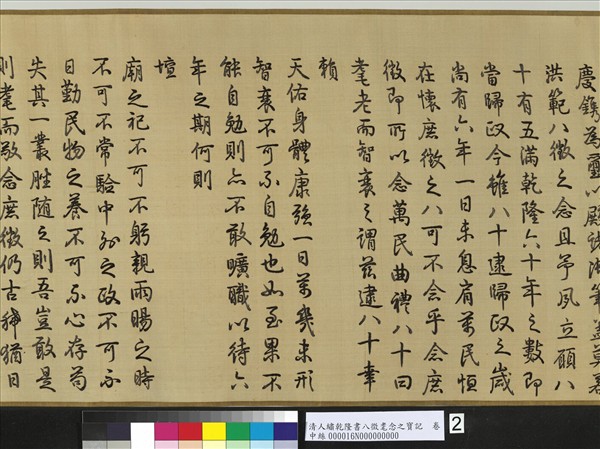 慶鐫為璽以殿諸御筆蓋莫若
洪範八徵之念且予夙立願八
十有五滿乾隆六十年之數即
當歸政今雖八十逮歸政之歲
尚有六年一日未息肩萬民恒
在懷庶徵之八可不念乎念庶
徵即所以念萬民曲禮八十曰
耄老而智衰之謂茲逮八十幸
賴
天佑身體康強一日萬幾未形
智衰不可不自勉也如至果不
能自勉則亦不敢曠職以待六
年之期何則
壇
廟之祀不可不躬親雨暘之時
不可不常驗中外之政不可不
日勤民物之養不可不心存苟
失其一叢脞隨之則吾豈敢是
則耄而敬念庶徵仍古稀猶日
清人繡乾隆書八徵耄念之寶記 卷
中絲000016N000000000
2